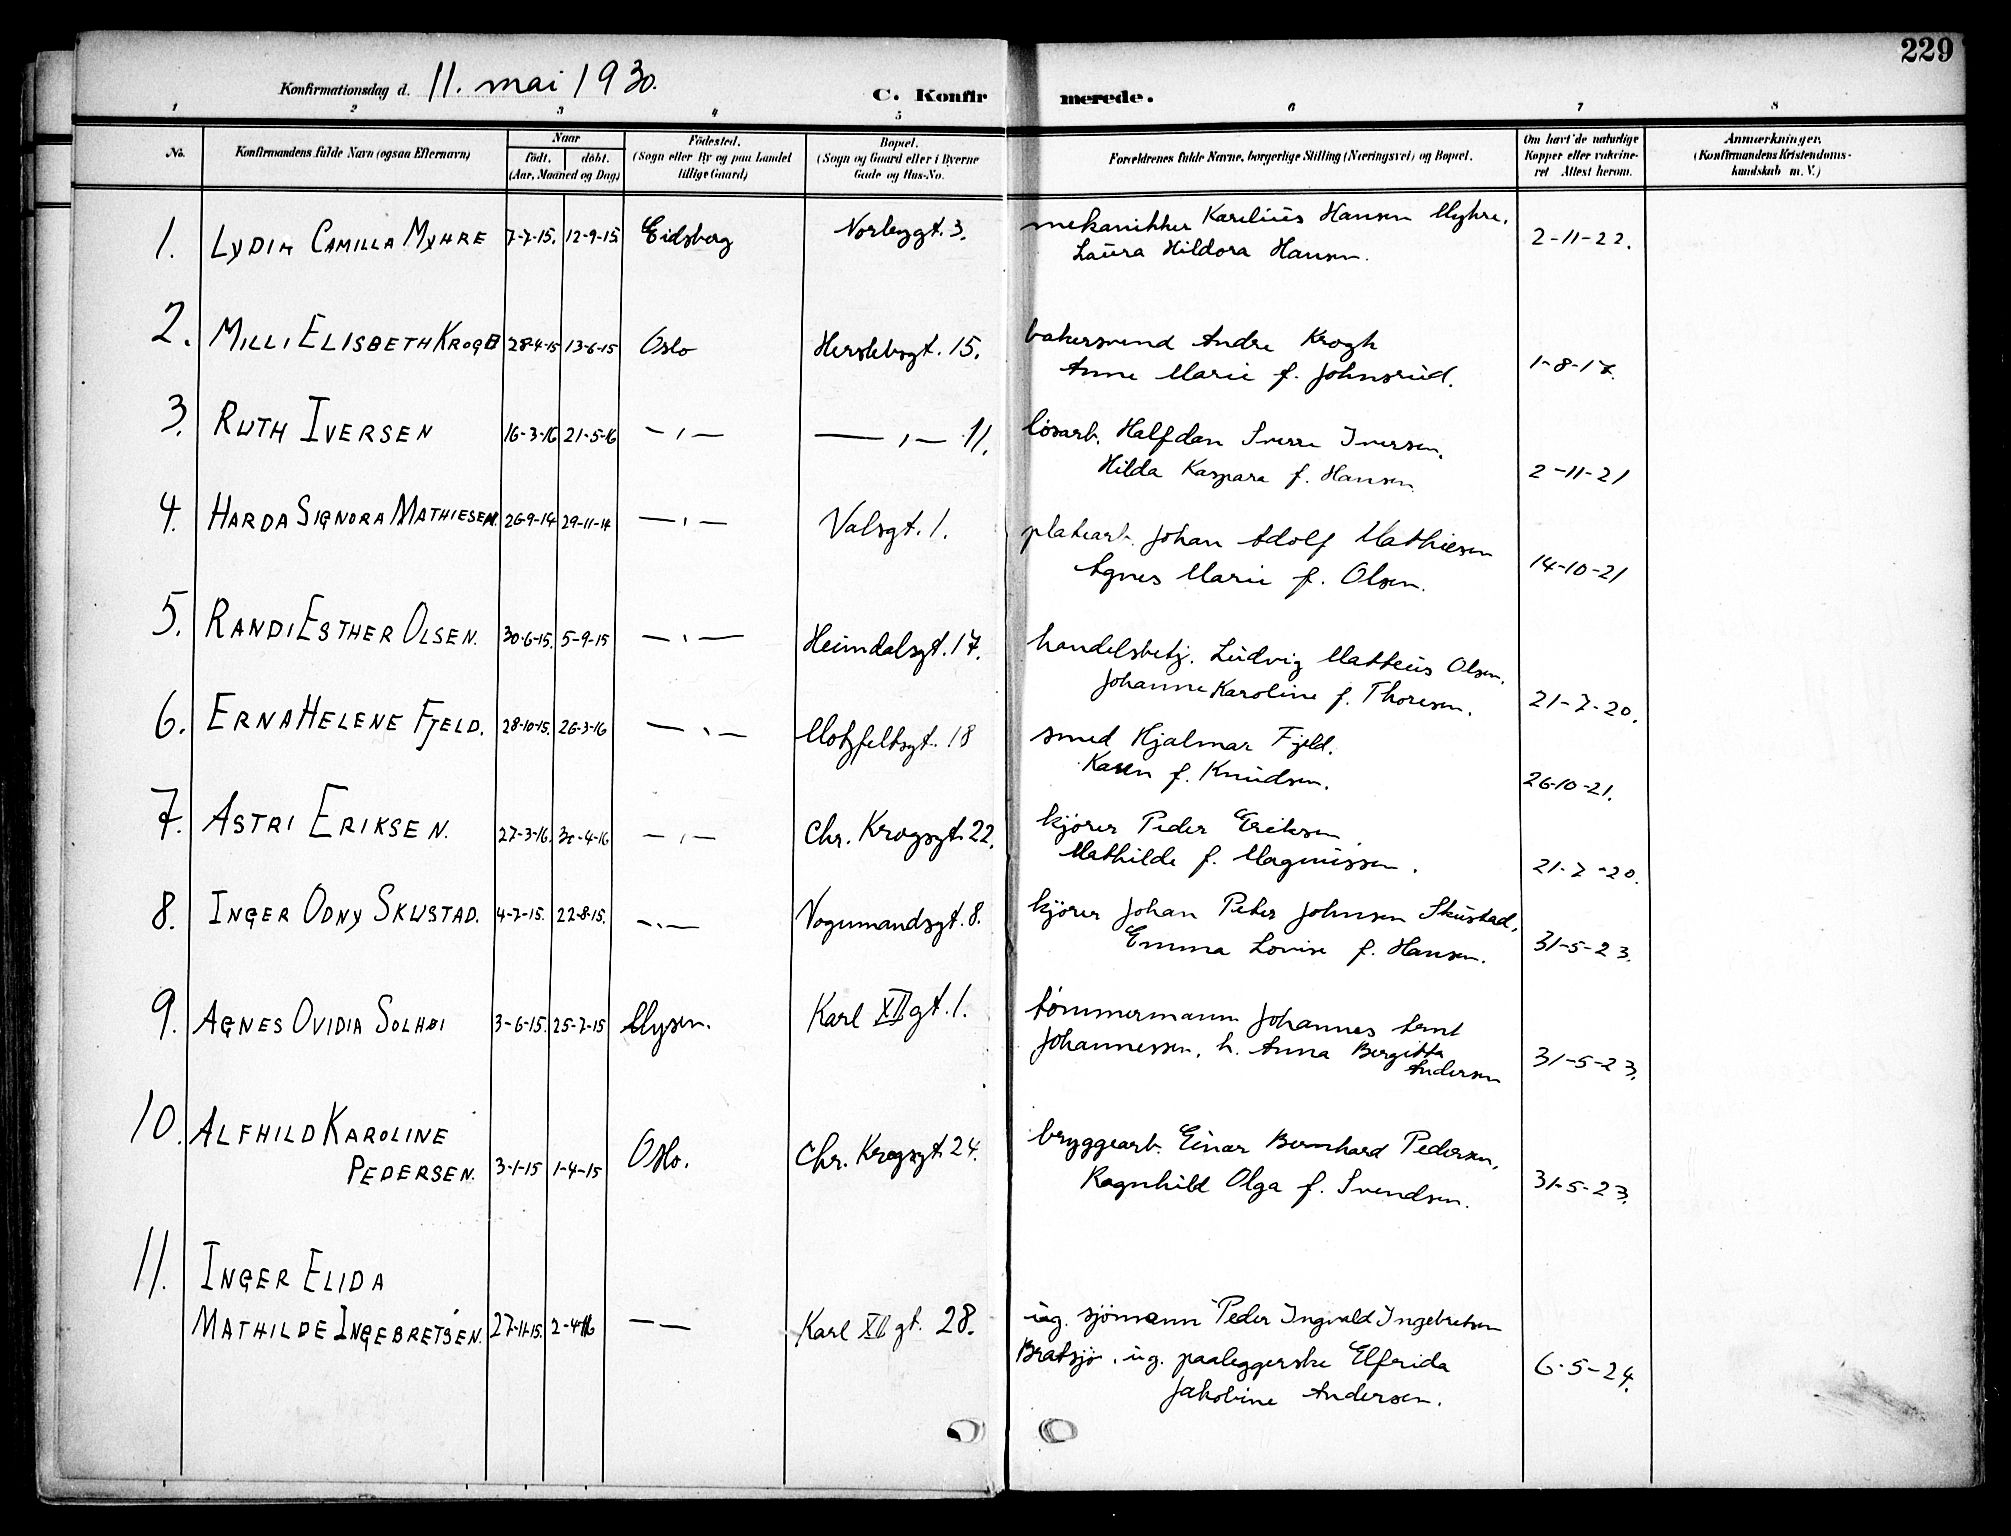 229
Konfirmationsdag d. 11. mai 1930. C. Konfirmerede.
1 2 3 4 5 6 7 8
No. Konfirmandens fulde Navn (ogsaa Efternavn) Naar født. døbt. (Aar, Maaned og Dag) Fødested. (Sogn eller By og paa Landet tillige Gaard) Bopæl. (Sogn og Gaard eller i Byerne Gade og Hus-No. Forældrenes fulde Navne, borgerlige Stilling (Næringsvei) og Bopæl. Om havt de naturlige Kopper eller vakcineret Attest herom. Anmærkninger. (Konfirmandens Kristendomskundskab m. V.)
1. LYDIA CAMILLA MYHRE 7-7-15. 12-9-15 Eidsberg Norbygt. 3. mekanikker Karelius Hansen Myhre. 2-11-22.
Laura Hildora Hansen.
2. MILLI ELISBETH KROGH 28-4-15 13-6-15 Oslo Herslebsgt. 15. bakersvend Andre Krogh 1-8-17.
Anne Marie f. Johnsrud.
3. RUTH IVERSEN 16-3-16 21-5-16 — , — — , — 11. løsarb. Halfdan Sverre Iversen.
Hilda Kaspara f. Hansen 2-11-21
4. HARDA SIGNORA MATHIESEN. 26-9-14 29-11-14 — , — Valsgt. 1. platearb. Johan Adolf Mathiesen
Agnes Marie f. Olsen. 14-10-21
5. RANDI ESTHER OLSEN. 30-6-15. 5-9-15 — , — Heimdalsgt. 17. handelsbetj. Ludvig Matteus Olsen.
Johanne Karoline f. Thoresen. 21-7-20.
6. ERNA HELENE FJELD. 28-10-15. 26-3-16 — , — Motzfeltsgt. 18 smed Hjalmar Fjeld.
Karen f. Knudsen. 26-10-21.
7. ASTRI ERIKSEN. 27-3-16. 30-4-16 — , — Chr. Krogsgt. 22. kjører Peder Eriksen
Mathilde f. Magnussen. 21-7-20.
8. INGER ODNY SKUSTAD. 4-7-15. 22-8-15. — , — Vognmandsgt. 8. kjører Johan Peter Johnsen Skustad.
Emma Lovise f. Hansen. 31-5-23.
9. AGNES OVIDIA SOLHØI 3-6-15. 25-7-15 Mysen. Karl XII gt. 1. tømmermann Johannes Arnt
Johannessen. h. Anna Bergitta
Andersen 31-5-23.
10. ALFHILD KAROLINE
PEDERSEN. 3-1-15 1-4-15 Oslo. Chr. Krogsgt. 24. bryggearb. Einar Bernhard Pedersen,
Ragnhild Olga f. Svendsen. 31-5-23.
11. INGER ELIDA
MATHILDE INGEBRETSEN. 27-11-15. 2-4-16 — — Karl XII gt. 28. ug. sjømann Peder Ingvald Ingebretsen
Bratsjø. ug. paaleggerske Elfrida 6-5-24.
Jakobine Andersen.